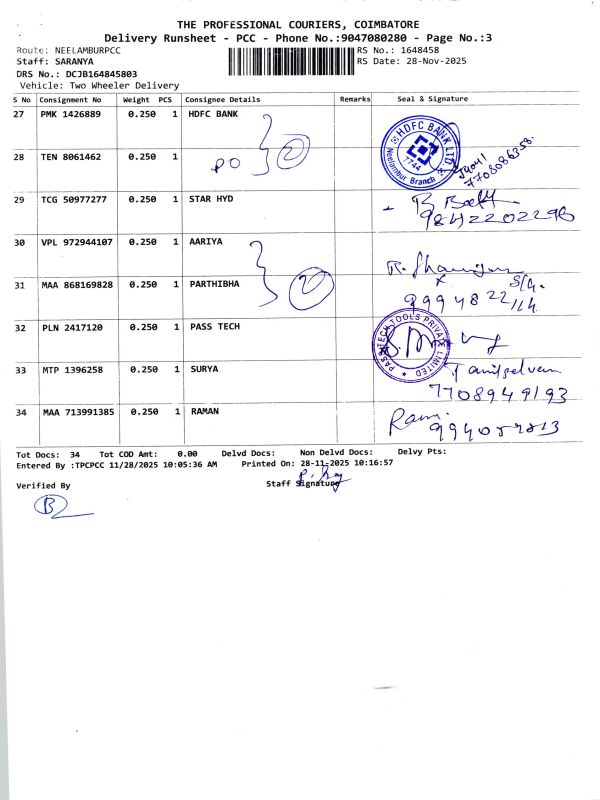 THE PROFESSIONAL COURIERS, COIMBATORE
Delivery Runsheet - PCC - Phone No.:9047080280 - Page No.:3
Route: NEELAMBURPCC
RS No.: 1648458
Staff: SARANYA
RS Date: 28-Nov-2025
DRS No.: DCJB164845803
Vehicle: Two Wheeler Delivery
S No Consignment No Weight PCS Consignee Details Remarks Seal & Signature
27 PMK 1426889 0.250 1 HDFC BANK
HDFC BANK LTD.
Neelambur Branch
7744
7708086358
28 TEN 8061462 0.250 1
PO 2
29 TCG 50977277 0.250 1 STAR HYD
9842202296
30 VPL 972944107 0.250 1 AARIYA
31 MAA 868169828 0.250 1 PARTHIBHA
2
32 PLN 2417120 0.250 1 PASS TECH
PASS TECH TOOLS PRIVATE LIMITED
33 MTP 1396258 0.250 1 SURYA
Tamilselvan
7708949193
34 MAA 713991385 0.250 1 RAMAN
Ram.
Tot Docs: 34 Tot COD Amt: 0.00 Delvd Docs: Non Delvd Docs: Delvy Pts:
Entered By :TPCPCC 11/28/2025 10:05:36 AM Printed On: 28-11-2025 10:16:57
Verified By Staff Signature